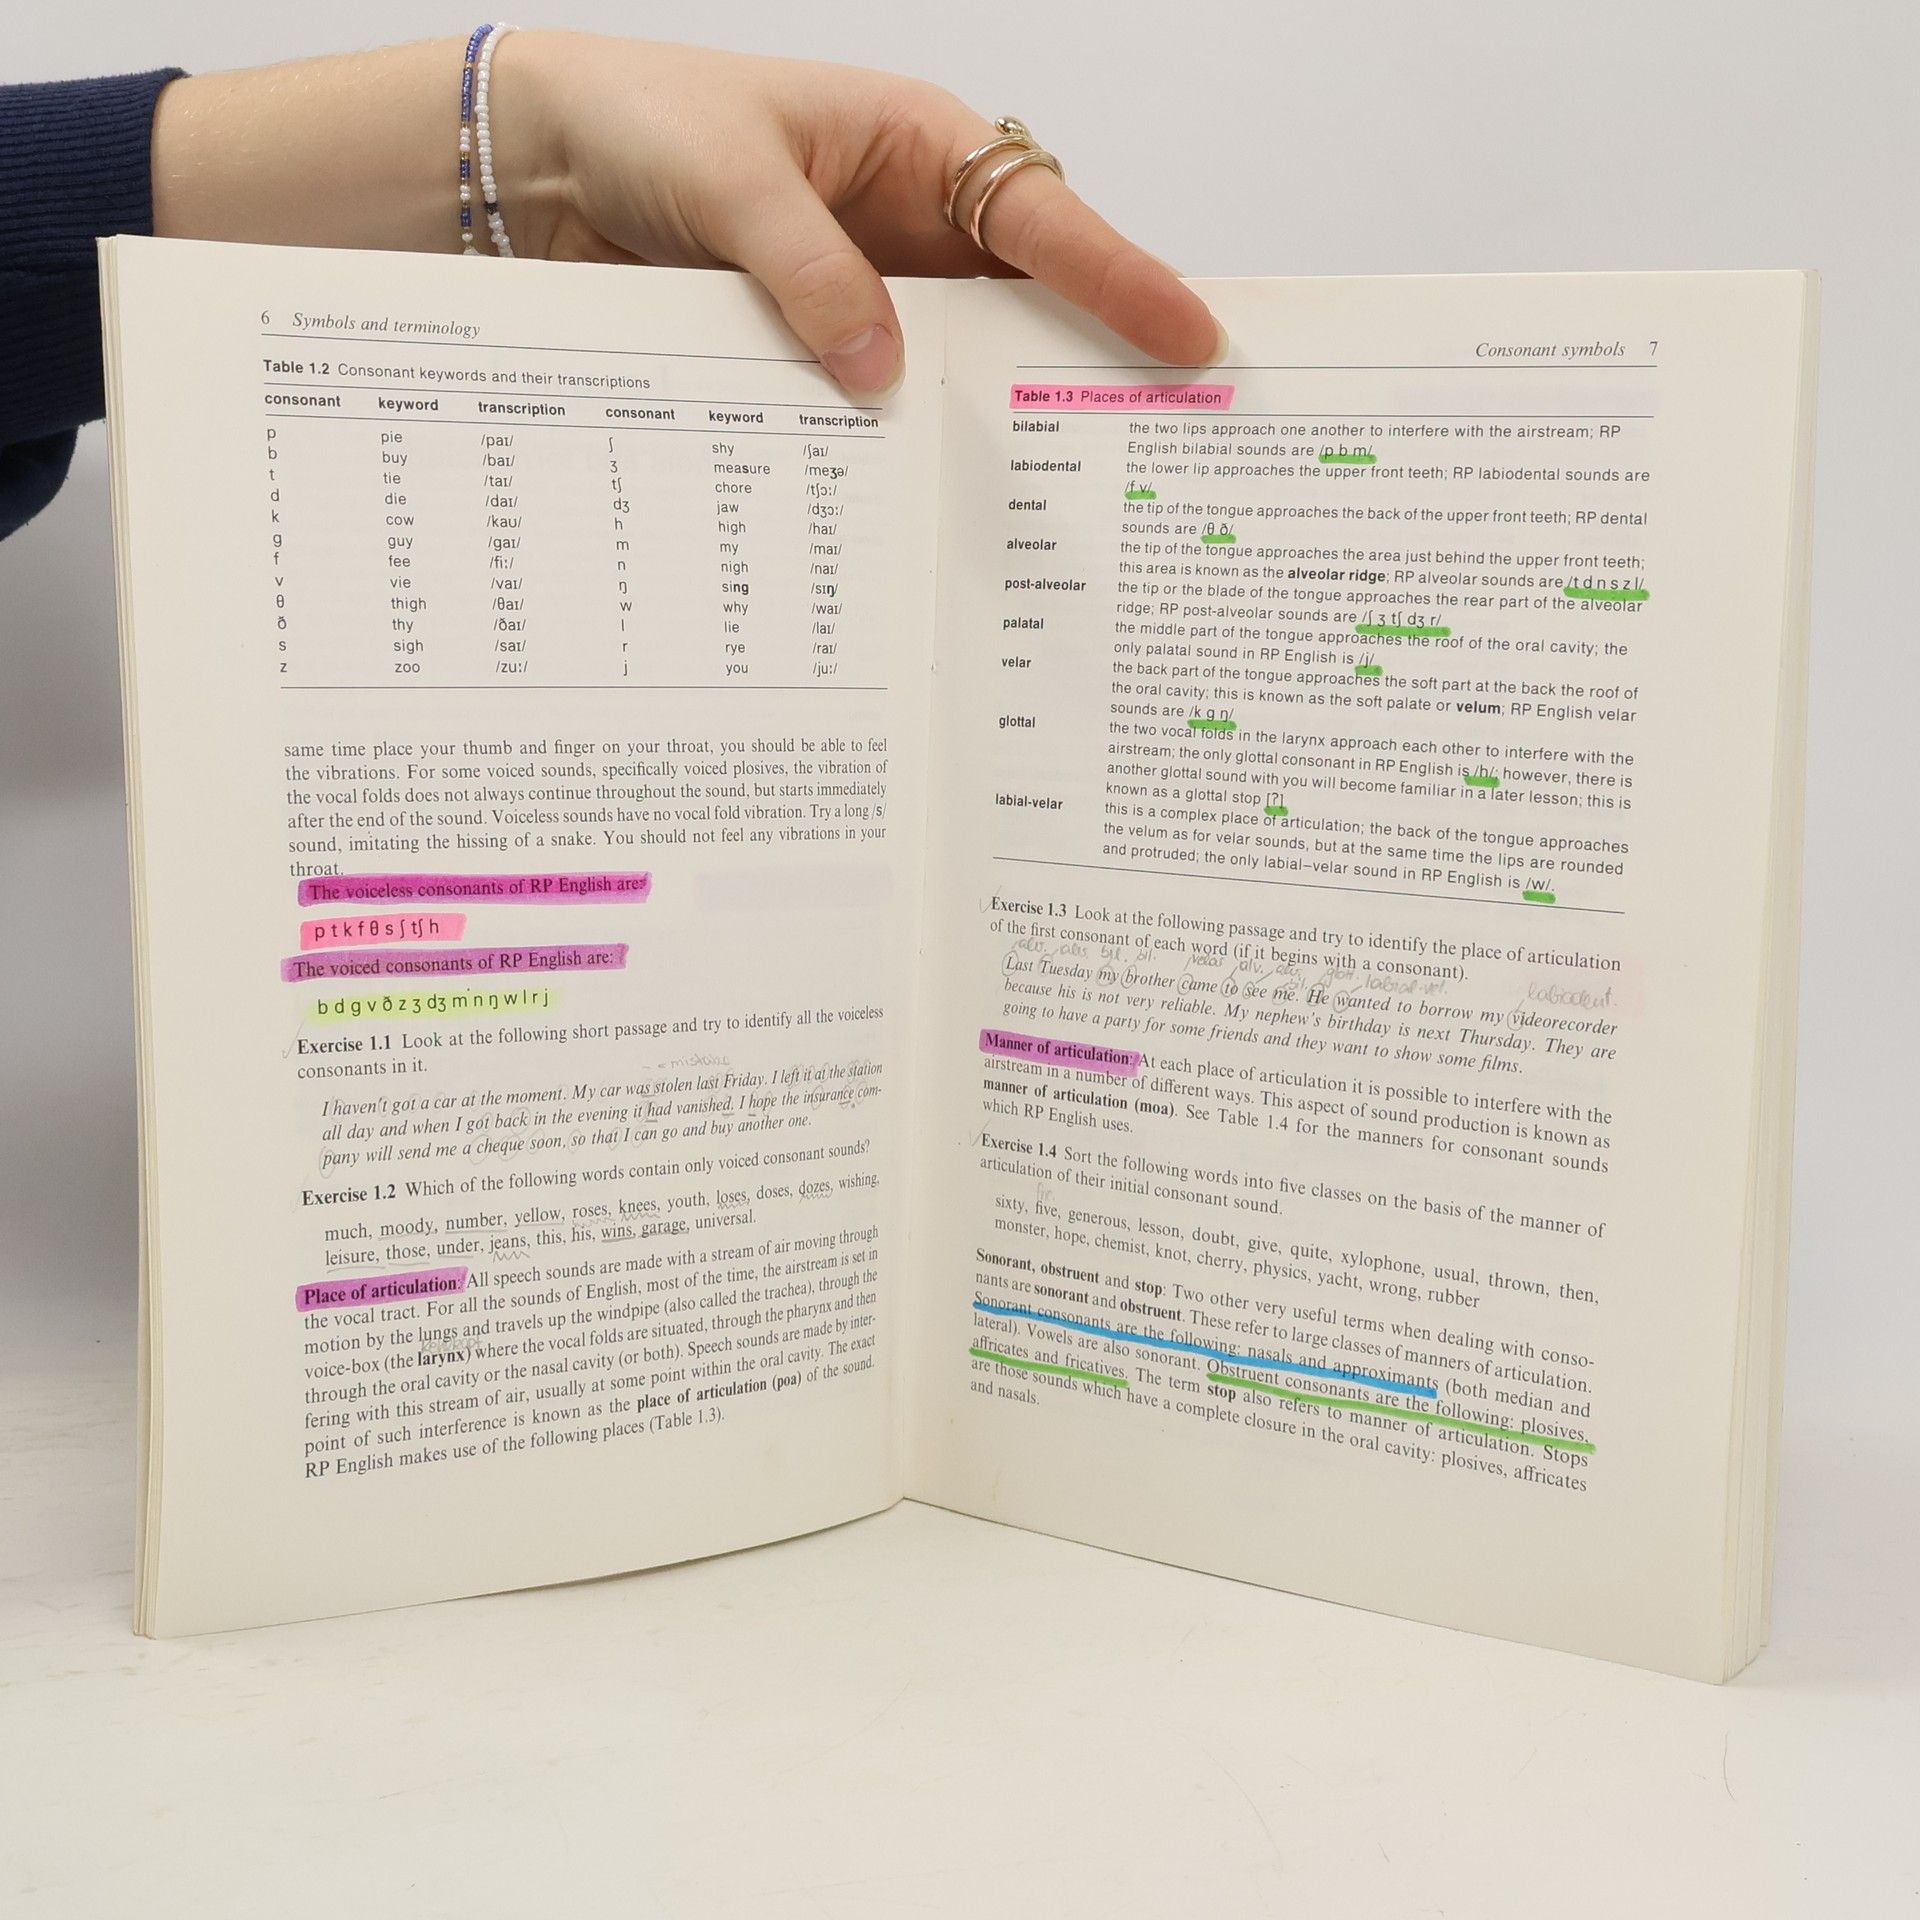 6 Symbols and terminology
Table 1.2 Consonant keywords and their transcriptions
consonant keyword transcription consonant keyword transcription
p pie /paɪ/ ʃ shy /ʃaɪ/
b buy /baɪ/ ʒ measure /meʒə/
t tie /taɪ/ tʃ chore /tʃɔː/
d die /daɪ/ dʒ jaw /dʒɔː/
k cow /kaʊ/ h high /haɪ/
g guy /gaɪ/ m my /maɪ/
f fee /fiː/ n nigh /naɪ/
v vie /vaɪ/ ŋ sing /sɪŋ/
θ thigh /θaɪ/ w why /waɪ/
ð thy /ðaɪ/ l lie /laɪ/
s sigh /saɪ/ r rye /raɪ/
z zoo /zuː/ j you /juː/
same time place your thumb and finger on your throat, you should be able to feel
the vibrations. For some voiced sounds, specifically voiced plosives, the vibration of
the vocal folds does not always continue throughout the sound, but starts immediately
after the end of the sound. Voiceless sounds have no vocal fold vibration. Try a long /s/
sound, imitating the hissing of a snake. You should not feel any vibrations in your
throat.
The voiceless consonants of RP English are:
p t k f θ s ʃ tʃ h
The voiced consonants of RP English are:
b d g v ð z ʒ dʒ m n ŋ w l r j
Exercise 1.1 Look at the following short passage and try to identify all the voiceless
consonants in it.
I haven't got a car at the moment. My car was stolen last Friday. I left it at the station
all day and when I got back in the evening it had vanished. I hope the insurance com-
pany will send me a cheque soon, so that I can go and buy another one.
Exercise 1.2 Which of the following words contain only voiced consonant sounds?
much, moody, number, yellow, roses, knees, youth, loses, doses, dozes, wishing,
leisure, those, under, jeans, this, his, wins, garage, universal.
Place of articulation: All speech sounds are made with a stream of air moving through
the vocal tract. For all the sounds of English, most of the time, the airstream is set in
motion by the lungs and travels up the windpipe (also called the trachea), through the
voice-box (the larynx) where the vocal folds are situated, through the pharynx and then
through the oral cavity or the nasal cavity (or both). Speech sounds are made by inter-
fering with this stream of air, usually at some point within the oral cavity. The exact
point of such interference is known as the place of articulation (poa) of the sound.
RP English makes use of the following places (Table 1.3).
Consonant symbols 7
Table 1.3 Places of articulation
bilabial the two lips approach one another to interfere with the airstream; RP
English bilabial sounds are /p b m/
labiodental the lower lip approaches the upper front teeth; RP labiodental sounds are
/f v/
dental the tip of the tongue approaches the back of the upper front teeth; RP dental
sounds are /θ ð/
alveolar the tip of the tongue approaches the area just behind the upper front teeth;
this area is known as the alveolar ridge; RP alveolar sounds are /t d n s z l/
post-alveolar the tip or the blade of the tongue approaches the rear part of the alveolar
ridge; RP post-alveolar sounds are /ʃ ʒ tʃ dʒ r/
palatal the middle part of the tongue approaches the roof of the oral cavity; the
only palatal sound in RP English is /j/
velar the back part of the tongue approaches the soft part at the back the roof of
the oral cavity; this is known as the soft palate or velum; RP English velar
sounds are /k g ŋ/
glottal the two vocal folds in the larynx approach each other to interfere with the
airstream; the only glottal consonant in RP English is /h/; however, there is
another glottal sound with you will become familiar in a later lesson; this is
known as a glottal stop [ʔ]
labial-velar this is a complex place of articulation; the back of the tongue approaches
the velum as for velar sounds, but at the same time the lips are rounded
and protruded; the only labial–velar sound in RP English is /w/.
Exercise 1.3 Look at the following passage and try to identify the place of articulation
of the first consonant of each word (if it begins with a consonant).
alv. alv. bil. bil. velar alv. alv. bil. glott. labial-vel. labiodent.
Last Tuesday my brother came to see me. He wanted to borrow my videorecorder
because his is not very reliable. My nephew's birthday is next Thursday. They are
going to have a party for some friends and they want to show some films.
Manner of articulation: At each place of articulation it is possible to interfere with the
airstream in a number of different ways. This aspect of sound production is known as
manner of articulation (moa). See Table 1.4 for the manners for consonant sounds
which RP English uses.
Exercise 1.4 Sort the following words into five classes on the basis of the manner of
articulation of their initial consonant sound.
sixty, five, generous, lesson, doubt, give, quite, xylophone, usual, thrown, then,
monster, hope, chemist, knot, cherry, physics, yacht, wrong, rubber
Sonorant, obstruent and stop: Two other very useful terms when dealing with conso-
nants are sonorant and obstruent. These refer to large classes of manners of articulation.
Sonorant consonants are the following: nasals and approximants (both median and
lateral). Vowels are also sonorant. Obstruent consonants are the following: plosives,
affricates and fricatives. The term stop also refers to manner of articulation. Stops
are those sounds which have a complete closure in the oral cavity: plosives, affricates
and nasals.